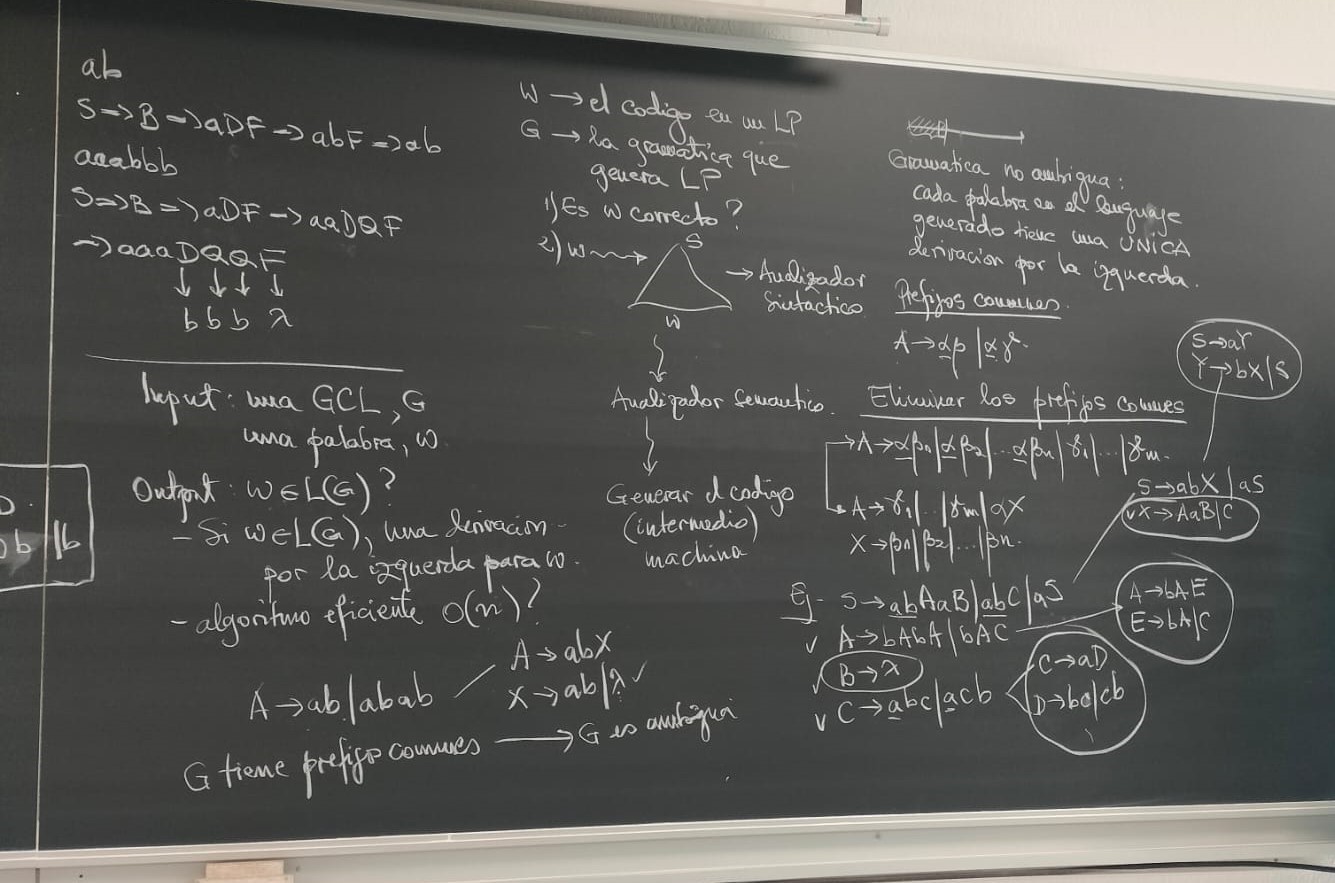 ab
S=>B=>aDF=>abF=>ab
aaabbb
S=>B=>aDF=>aaDQF
=>aaaDQQF
↓ ↓ ↓ ↓
b b b λ
Input: una GCL, G
una palabra, w.
Output: w∈L(G)?
- Si w∈L(G), una derivacion
por la izquerda para w.
- algoritmo eficiente O(n)?
A→ab|abab
A→abX
X→ab|λ ✓
G tiene prefijo comunes → G es ambigua
b | b
W → el codigo en un LP
G → la gramatica que
genera LP
1) Es w correcto?
2) w → S
→ Analizador
Sintactico
w
Analizador Semantico.
Generar el codigo
(intermedio)
machina
Gramatica no ambigua:
cada palabra en el lenguaje
generado tiene una UNICA
derivacion por la izquerda.
Prefijos comunes.
A→αβ|αγ.
Eliminar los prefijos comues
→A→αβ1|αβ2|...αβn|γ1|...|γm.
A→γ1|...|γm|αX
X→β1|β2|...|βn.
S→aY
Y→bX|S
S→abX|aS
✓X→AaB|C
Ej- S→abAaB|abC|aS
✓ A→bAbA|bAC
✓ B→λ
✓ C→abc|acb
A→bAE
E→bA|C
C→aD
D→bc|cb